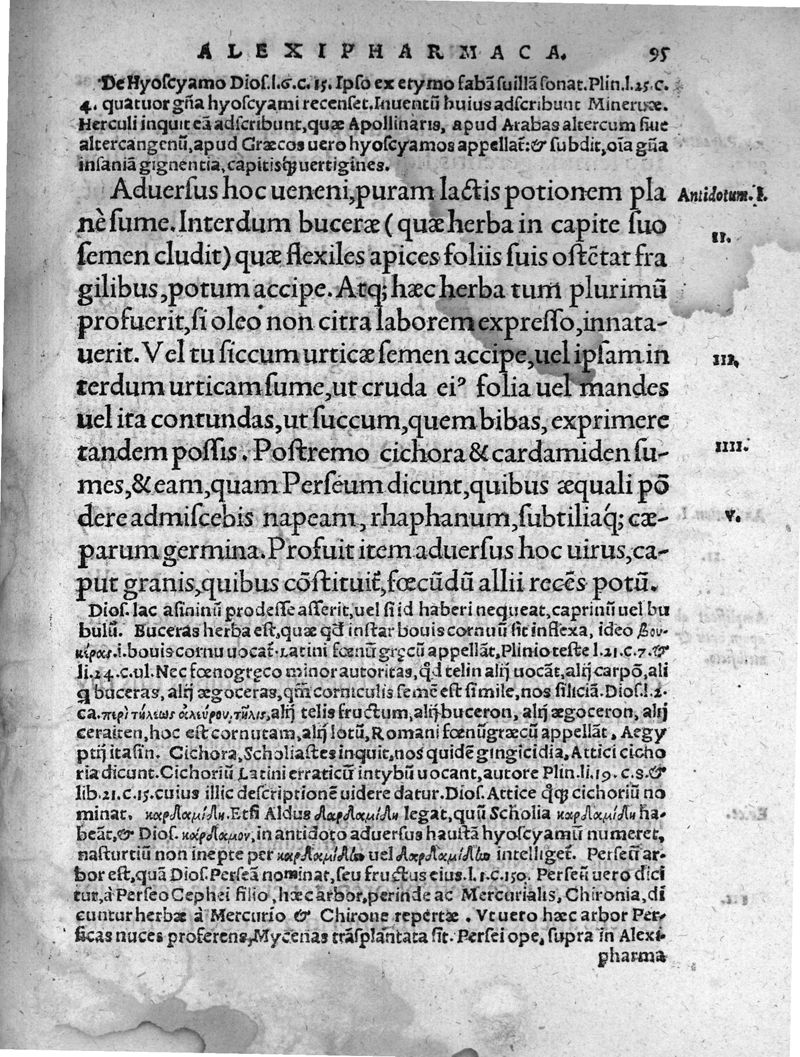 ALEXIPHARMACA. 95
De Hyoscyamo Dios.l.6.c.15. Ipso ex etymo fabã suillã sonat. Plin.l.25.c.
4. quatuor gña hyoscyami recenset. Inuentũ huius adscribunt Mineruæ.
Herculi inquit eã adscribunt, quæ Apollinaris, apud Arabas altercum siue
altercangenũ, apud Græcos uero hyoscyamos appellat̃: & subdit, oĩa gña
insaniã gignentia, capitisq; uertigines.
Aduersus hoc ueneni, puram lactis potionem pla
nè sume. Interdum buceræ (quæ herba in capite suo
semen cludit) quæ flexiles apices foliis suis ostẽtat fra
gilibus, potum accipe. Atq; hæc herba tum plurimũ
profuerit, si oleo non citra laborem expresso, innata-
uerit. Vel tu siccum urticæ semen accipe, uel ipsam in
terdum urticam sume, ut cruda eiꝰ folia uel mandes
uel ita contundas, ut succum, quem bibas, exprimere
tandem possis. Postremo cichora & cardamiden su-
mes, & eam, quam Perseum dicunt, quibus æquali põ
dere admiscebis napeam, rhaphanum, subtiliaq; cæ-
parum germina. Profuit item aduersus hoc uirus, ca-
put granis, quibus cõstituit̃, fœcũdũ allii recẽs potũ.
Antidotum. I.
II.
III.
IIII.
V.
Dios. lac asininũ prodesse asserit, uel si id haberi nequeat, caprinũ uel bu
bulũ. Buceras herba est, quæ qđ instar bouis cornuũ sit inflexa, ideo βου-
κέρας .i. bouis cornu uocat̃. Latini fœnũ gręcũ appellãt, Plinio teste l.21.c.7. &
li.24.c.ul. Nec fœnogręco minor autoritas, qđ telin alij uocãt, alij carpõ, ali
q buceras, alij ægoceras, qm̃ corniculis semẽ est simile, nos siliciã. Dios.l.2.
ca. περὶ τήλεως ἀλεύρου, τῆλις, alij telis fructum, alij buceron, alij ægoceron, alij
ceraiten, hoc est cornutam, alij lotũ, Romani fœnũgræcũ appellãt, Aegy
ptij itasin. Cichora, Scholiastes inquit, nos quidẽ gingicidia, Attici cicho
ria dicunt. Cichoriũ Latini erraticũ intybũ uocant, autore Plin.li.19.c.8. &
lib.21.c.15. cuius illic descriptionẽ uidere datur. Dios. Attice qq; cichoriũ no
minat. καρδαμίδη. Etsi Aldus δαρδαμίδη legat, quũ Scholia καρδαμίδη ha-
beãt, & Dios. κάρδαμον, in antidoto aduersus haustã hyoscyamũ numeret,
nasturtiũ non inepte per καρδαμίδω uel δαρδαμίδω intelliget̃. Perseũ ar-
bor est, quã Dios. Perseã nominat, seu fructus eius.l.1.c.150. Perseũ uero dici
tur, à Perseo Cephei filio, hæc arbor, perinde ac Mercurialis, Chironia, di
cuntur herbæ à Mercurio & Chirone repertæ. Vt uero hæc arbor Per-
sicas nuces proferens, Mycenas trãsplantata sit. Persei ope, supra in Alexi-
pharma